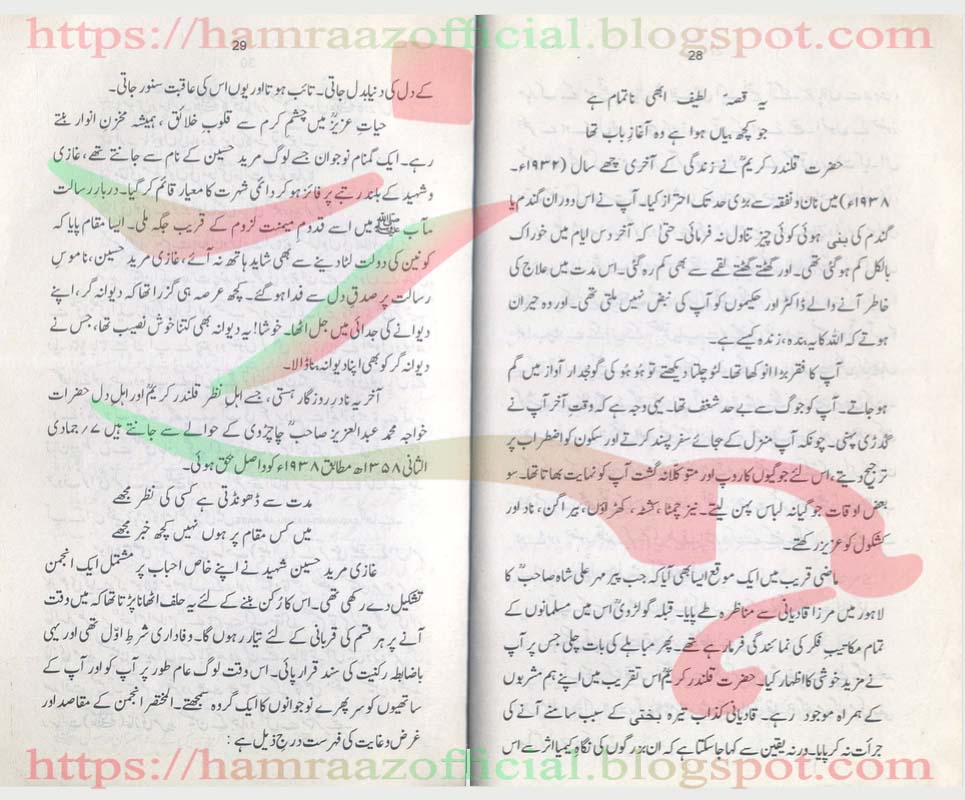 https://hamraazofficial.blogspot.com
28
یہ قصۂ لطیف ابھی ناتمام ہے
جو کچھ بیاں ہوا ہے وہ آغازِ باب تھا
حضرت قلندر کریمؒ نے زندگی کے آخری چھے سال (۱۹۳۲ء۔
۱۹۳۸ء) میں نان و نفقہ سے بڑی حد تک احتراز کیا۔ آپ نے اس دوران گندم یا
گندم کی بنی ہوئی کوئی چیز تناول نہ فرمائی۔ حتیٰ کہ آخر دس ایام میں خوراک
بالکل کم ہو گئی تھی۔ اور گھٹتے گھٹتے لقمے سے بھی کم رہ گئی۔ اس مدت میں علاج کی
خاطر آنے والے ڈاکٹر اور حکیموں کو آپ کی نبض نہیں ملتی تھی۔ اور وہ حیران
ہوتے کہ اللہ کا یہ بندہ، زندہ کیسے ہے۔
آپ کا فقر بڑا انوکھا تھا۔ لٹو چلتا دیکھتے تو ہُو ہُو کی گونجدار آواز میں گم
ہو جاتے۔ آپ کو جوگ سے بے حد شغف تھا۔ یہی وجہ ہے کہ وقتِ آخر آپ نے
گدڑی پہنی۔ چونکہ آپ منزل کے بجائے سفر پسند کرتے اور سکون کو اضطراب پر
ترجیح دیتے، اس لئے جوگیوں کا روپ اور متوکلانہ گشت آپ کو نہایت بھاتا تھا۔ سو
بعض اوقات جوگیانہ لباس پہن لیتے۔ نیز چمٹا، کنٹھ، کھڑاؤں، بیراگن، ناد اور
کشکول کو عزیز رکھتے۔
ماضی قریب میں ایک موقع ایسا بھی آیا کہ جب پیر مہر علی شاہ صاحبؒ کا
لاہور میں مرزا قادیانی سے مناظرہ طے پایا۔ قبلہ گولڑویؒ اس میں مسلمانوں کے
تمام مکاتیبِ فکر کی نمائندگی فرما رہے تھے۔ پھر مباہلے کی بات چلی جس پر آپ
نے مزید خوشی کا اظہار کیا۔ حضرت قلندر کریمؒ اس تقریب میں اپنے ہم مشربوں
کے ہمراہ موجود رہے۔ قادیانی کذاب تیرہ بختی کے سبب سامنے آنے کی
جرأت نہ کر پایا ورنہ یقین سے کہا جا سکتا ہے کہ ان بزرگوں کی نگاہِ کیمیا اثر سے اس
29
کے دل کی دنیا بدل جاتی۔ تائب ہوتا اور یوں اس کی عاقبت سنور جاتی۔
حیاتِ عزیزؒ میں چشمِ کرم سے قلوبِ خلائق، ہمیشہ مخزنِ انوار بنتے
رہے۔ ایک گمنام نوجوان جسے لوگ مرید حسین کے نام سے جانتے تھے، غازی
و شہید کے بلند رتبے پر فائز ہو کر دائمی شہرت کا معیار قائم کر گیا۔ دربارِ رسالت
مآب ﷺ میں اسے قدومِ میمنت لزوم کے قریب جگہ ملی۔ ایسا مقام پایا کہ
کونین کی دولت لٹا دینے سے بھی شاید ہاتھ نہ آئے، غازی مرید حسین، ناموسِ
رسالت پر صدقِ دل سے فدا ہو گئے۔ کچھ عرصہ ہی گزرا تھا کہ دیوانہ گر، اپنے
دیوانے کی جدائی میں جل اٹھا۔ خوشا! یہ دیوانہ بھی کتنا خوش نصیب تھا، جس نے
دیوانہ گر کو بھی اپنا دیوانہ بنا ڈالا۔
آخر یہ نادرِ روزگار ہستی، جسے اہلِ نظر قلندر کریمؒ اور اہلِ دل حضرات
خواجہ محمد عبدالعزیز صاحبؒ چاچڑوی کے حوالے سے جانتے ہیں ۷/ جمادی
الثانی ۱۳۵۸ھ مطابق ۱۹۳۸ء کو واصل بحق ہوئی۔
مدت سے ڈھونڈتی ہے کسی کی نظر مجھے
میں کس مقام پر ہوں نہیں کچھ خبر مجھے
غازی مرید حسین شہید نے اپنے خاص احباب پر مشتمل ایک انجمن
تشکیل دے رکھی تھی۔ اس کا رُکن بننے کے لئے یہ حلف اٹھانا پڑتا تھا کہ میں وقت
آنے پر ہر قسم کی قربانی کے لئے تیار رہوں گا۔ وفاداری شرطِ اوّل تھی اور یہی
باضابطہ رکنیت کی سند قرار پائی۔ اس وقت لوگ عام طور پر آپ کو اور آپ کے
ساتھیوں کو سر پھرے نوجوانوں کا ایک گروہ سمجھتے۔ المختصر انجمن کے مقاصد اور
غرض و غایت کی فہرست درج ذیل ہے :
https://hamraazofficial.blogspot.com